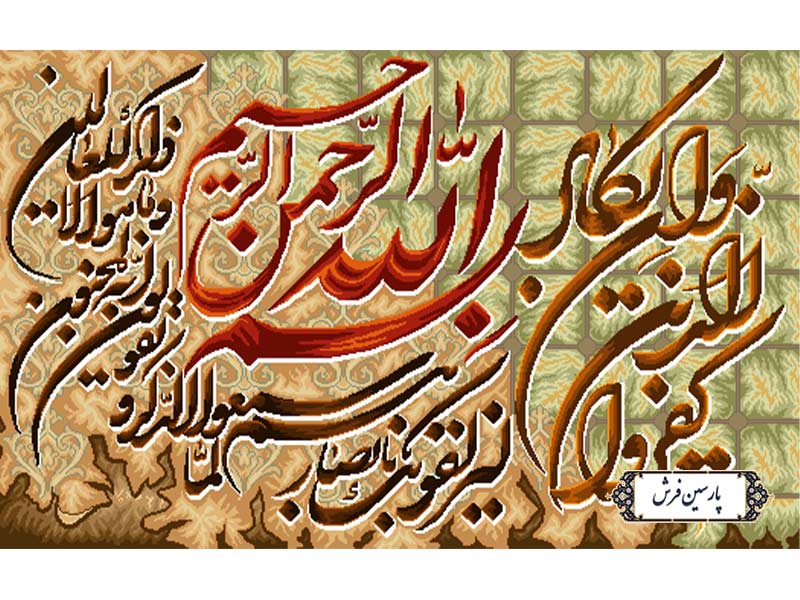 بسم الله الرحمن الرحیم
وان یکاد
الذین
کفروا
لیزلقونک بابصارهم
لما سمعوا الذکر و
یقولون انه لمجنون
و ما هو الا
ذکر للعالمین
پارسین فرش